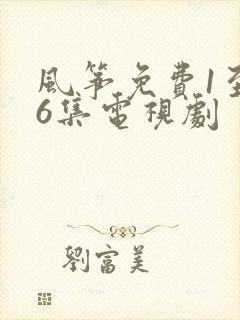 風箏免費1至
6集電視劇
劉富美